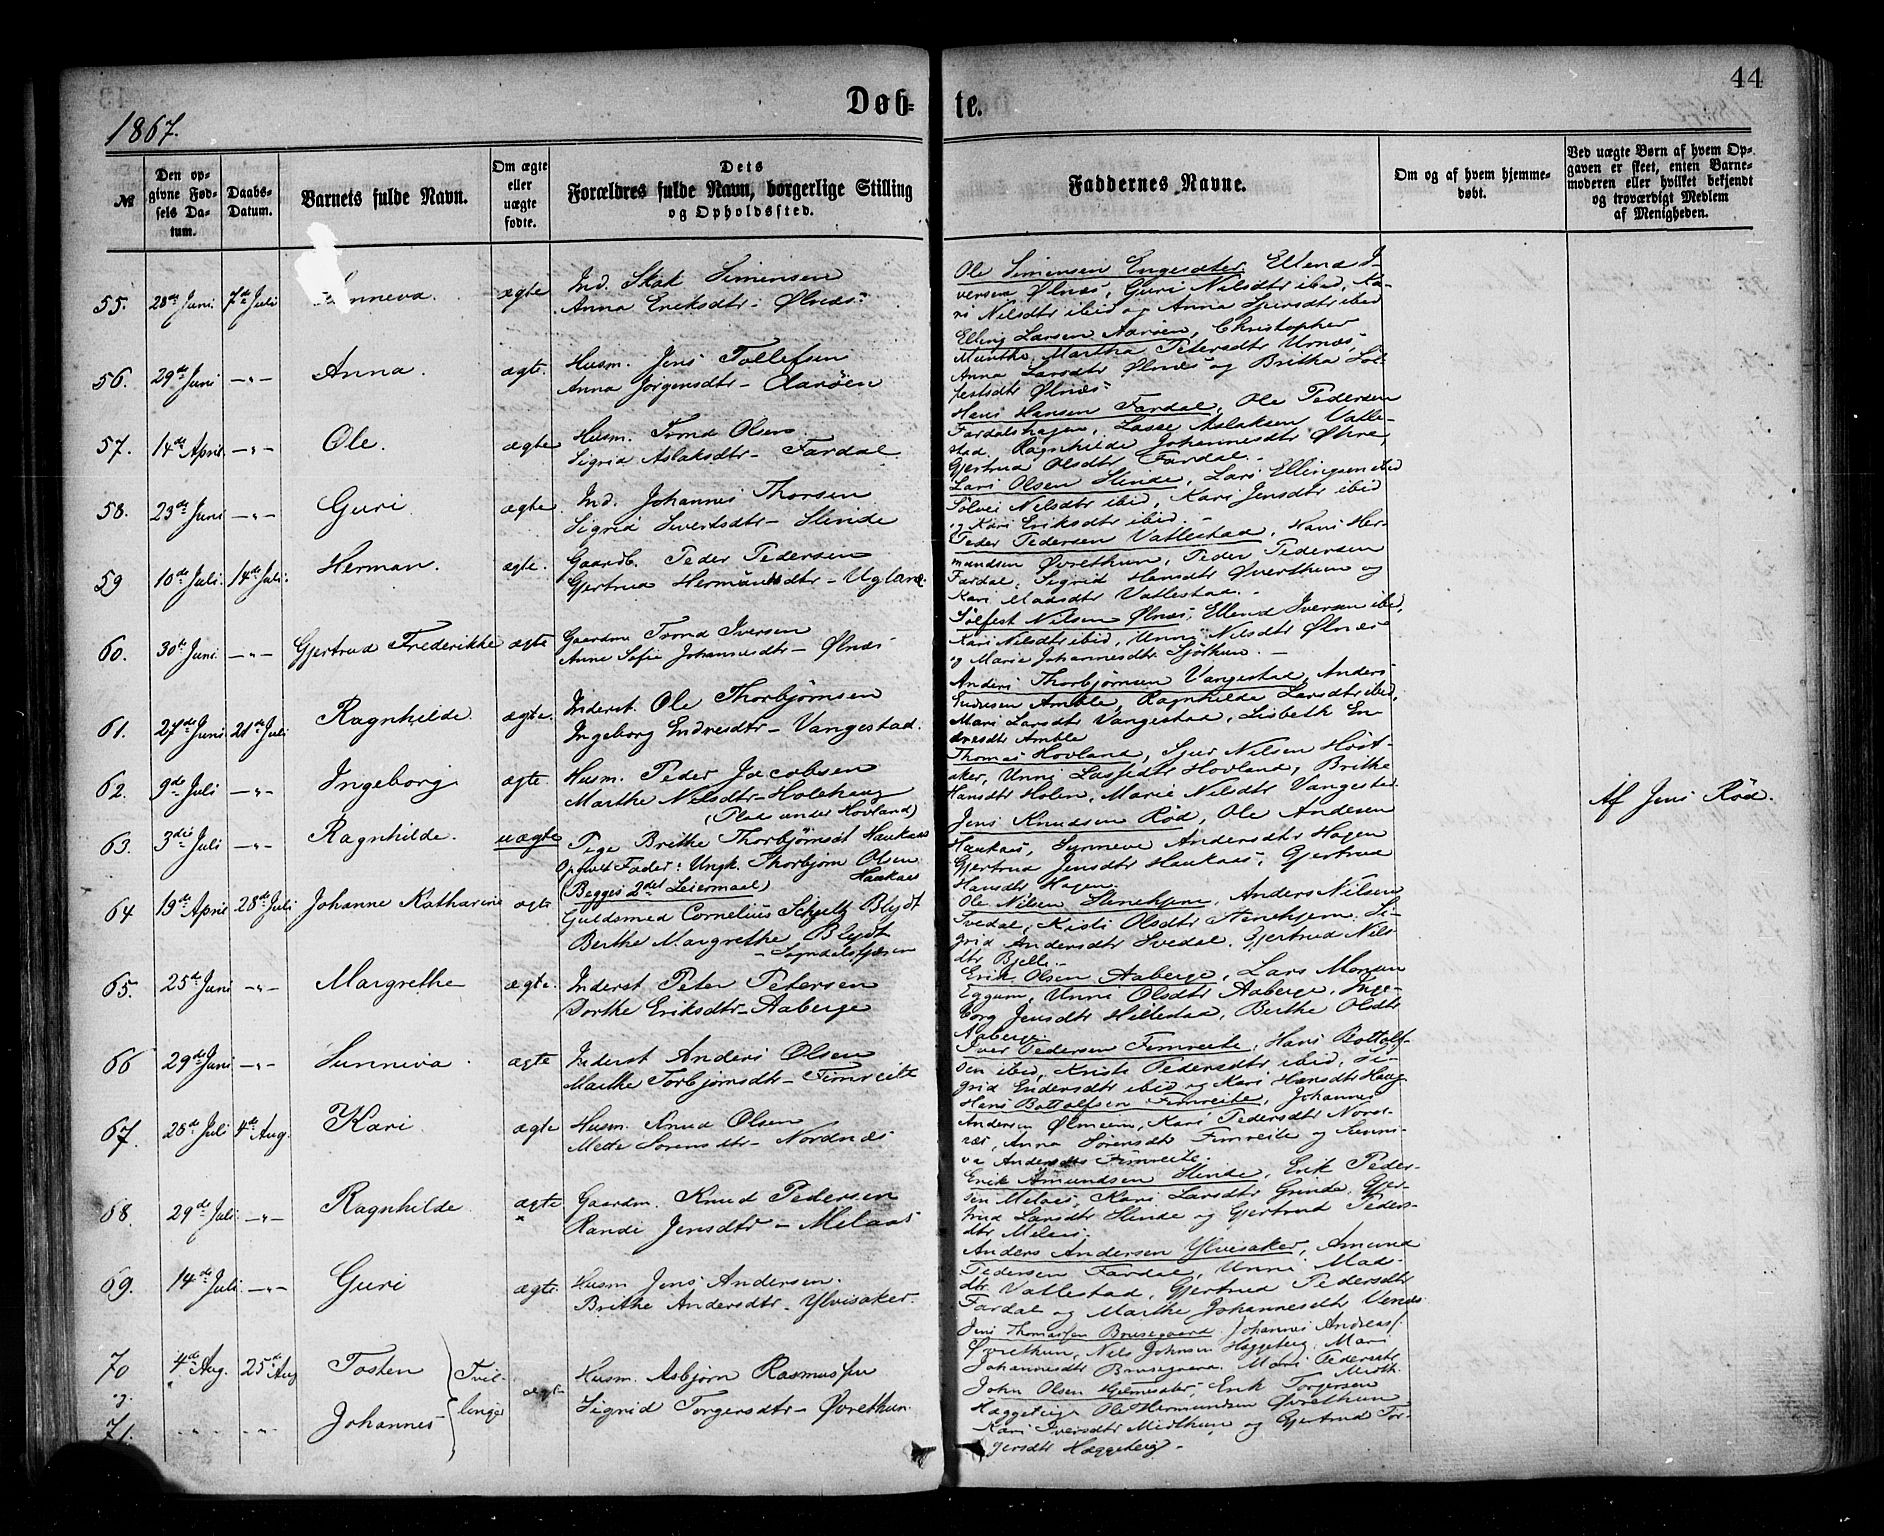 44
Døb- te.
1867.
№
Den op-
givne Fød-
sels Da-
tum.
Daabs-
Datum.
Barnets fulde Navn.
Om ægte
eller
uægte
fødte.
Dets
Forældres fulde Navn, borgerlige Stilling
og Opholdssted.
Faddernes Navne.
Om og af hvem hjemme-
døbt.
Ved uægte Børn af hvem Op-
gaven er skeet, enten Barne-
moderen eller hvilket bekjendt
og troværdigt Medlem
af Menigheden.
55. 28de Juni 7de Juli Synneva. ægte
Ind. Skak Simensen
Anna Eriksdtr - Ølnæs
Ole Simensen Engesæter, Ellend I-
versen Ølnæs, Guri Nilsdtr ibid, Ka-
ri Nilsdtr ibid og Anna Sjursdtr ibid
56. 29de Juni -"- Anna. ægte.
Husm. Jens Tollefsen
Anna Jørgensdtr - Aarøen
Elling Larsen Aarøen, Christopher
Munthe, Martha Petersdtr Urnæs,
Anna Larsdtr Ølnæs og Britha Søl-
festsdtr Ølnæs
57. 14de April -"- Ole. ægte
Husm. Tomd Olsen
Sigrid Aslaksdtr - Fardal
Hans Hansen Fardal, Ole Pedersen
Fardalshagen, Lasse Aslaksen Vatle-
stad, Ragnhilde Johannesdtr Øhre,
Gjertrud Olsdtr Fardal. -
58. 23de Juni -"- Guri. ægte.
Ind. Johannes Thorsen
Sigrid Sivertsdtr - Slinde
Lars Olsen Slinde, Lars Ellingsen ibid
Sølvei Nilsdtr ibid, Kari Jensdtr ibid
og Kari Eriksdtr ibid. -
59 10de Juli 14de Juli. Herman. ægte.
Gaardb. Peder Pedersen
Gjertrud Hermundsdtr - Uglane.
Peder Pedersen Vatlestad, Hans Her-
mundsen Øvrethun, Peder Pedersen
Fardal, Sigrid Hansdtr Øvrethun og
Kari Madsdtr Vatlestad. -
60. 30de Juni. -"- Gjertrud Frederikke ægte
Gaardm Tomd Iversen
Anne Sofie Johannesdtr - Ølnæs
Sølfest Nilsen Ølnæs, Ellend Iversen ibid,
Kari Nilsdtr ibid, Unni Nilsdtr Ølnæs
og Marie Johannesdtr Sjøthun. -
61. 27de Juni 21de Juli Ragnhilde. ægte.
Inderst. Ole Thorbjørnsen
Ingeborg Endresdtr - Vangestad.
Anders Thorbjørnsen Vangestad, Anders
Endresen Amble, Ragnhilde Larsdtr ibid,
Mari Larsdtr Vangestad, Lisbeth En-
dresdtr Amble
62. 9de Juli -"- Ingeborg ægte.
Husm. Peder Jacobsen
Marthe Nilsdtr - Holehaug
(Plads under Hovland)
Thomas Hovland, Sjur Nilsen Høst-
aker, Unni Lassesdtr Hovland, Brithe
Hansdtr Holen, Marie Nilsdtr Vangestad
63. 3die Juli -"- Ragnhilde. uægte
Pige Brithe Thorbjørnsdt Haukaas
Opgivet Fader: Ungk. Thorbjørn Olsen
Haukaas
(Begges 2det Leiermaal)
Jens Knudsen Rød, Ole Andersen
Haukaas, Synneve Andersdtr Hagen
Gjertrud Jensdtr Haukaas, Gjertrud
Hansdtr Hagen.
Af Jens Rød.
64 19de April 28de Juli Johanne Katharine ægte
Guldsmed Cornelius Schieltz Blydt
Berthe Margrethe Blydt
- Sogndalsfjæren
Ole Nilsen Stenehjem, Anders Nilsen
Svedal, Kristi Olsdtr Stenehjem, Si-
grid Andersdtr Svedal, Gjertrud Nils
dtr Bjelli. -
65. 25de Juni -"- Margrethe ægte.
Inderst Peter Petersen
Dorthe Eriksdtr - Aaberge
Erik Olsen Aaberge, Lars Monsen
Eggum, Unni Olsdtr Aaberge, Inge-
borg Jensdtr Hillestad, Berthe Olsdtr
Aaberge
66 29de Juni -"- Sunneva. ægte
Inderst Anders Olsen
Marthe Torbjørnsdtr - Fimreite
Iver Pedersen Fimreite, Hans Bottolf-
sen ibid, Kristi Pedersdtr ibid, Si-
grid Endersdtr ibid og Kari Hansdtr Haug
67. 25de Juli 4de Aug. Kari. ægte
Husm. Knud Olsen
Mette Sørensdtr - Nordnæs
Hans Bottolfsen Fimreite, Johannes
Andersen Ølmeim, Kari Pedersdtr Nord-
næs, Anna Sørensdtr Fimreite og Sunni-
va Andersdtr Fimreite.
68. 29de Juli. -"- Ragnhilde. ægte
Gaardm. Knud Pedersen
Randi Jensdtr - Melaas
Erik Amundsen Slinde, Erik Peder-
sen Melaas, Kari Larsdtr Grinde, Gjer-
trud Larsdtr Slinde og Gjertrud Peders-
dtr Melaas.
69. 14de Juli. -"- Guri ægte
Husm Jens Andersen.
Brithe Andersdtr - Ylvisaker.
Anders Andersen Ylvisaker, Amund
Pedersen Fardal, Unni Mads-
dtr Vatlestad, Gjertrud Pedersdtr
Fardal og Marthe Johannesdtr Venæs
70 4de Aug. 25de Aug Tosten
Tvil-
linge
og
71. -"- -"- Johannes
ægte
Husm. Asbjørn Rasmussen
Sigrid Torgersdtr - Øvrethun.
Jens Thomassen Brusegaard, Johannes Andreas.
Øvrethun, Nils Johnsen Hæggeberg, Mari
Johannesdtr Brusegaard, Mari Pedersdtr
Midth.
John Olsen Hjelmesæter, Erik Torgersen
Hæggeberg, Ole Hermundsen Øvrethun
Kari Iversdtr Midthun og Gjertrud Tor-
gersdtr Hæggeberg. -